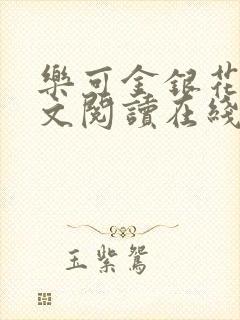 樂可金銀花
文閱讀在綫
玉紫鴛